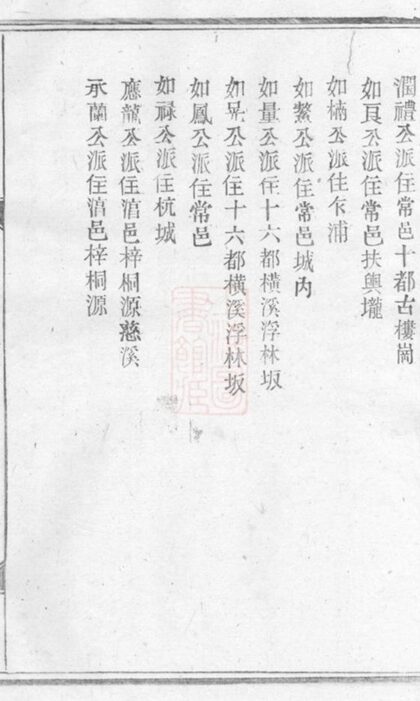 潤禮公派住常邑十都古樓崗
如良公派住常邑扶輿壠
如楠公派住乍浦
如鰲公派住常邑城內
如量公派住十六都橫溪浮林坂
如昇公派住十六都橫溪浮林坂
如鳳公派住常邑
如祿公派住杭城
應龍公派住淯邑梓桐源慈溪
承蘭公派住淯邑梓桐源